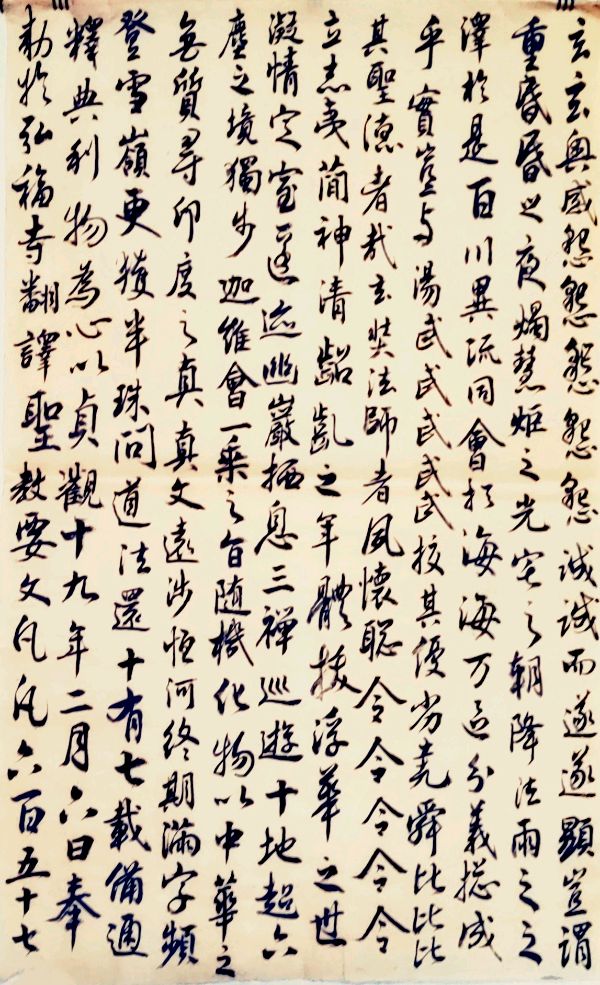 玄玄奧感懇懇懇懇懇誠誠而遂遂顯豈謂
重昏昏之夜燭慧炬之光宅之朝降法雨之之
澤於是百川異流同會於海海万區分義揔成
乎實豈与湯武武武武武挍其優劣堯舜比比比
其聖德者哉玄奘法師者夙懷聡令令令令令
立志夷簡神清齠齔之年體拔浮華之世
凝情定室匿迹幽巖栖息三禪巡遊十地超六
塵之境獨步迦維會一乗之旨随機化物以中華之
無質尋印度之真真文遠涉恒河終期滿字頻
登雪嶺更獲半珠問道法還十有七載備通
釋典利物為心以貞觀十九年二月六日奉
勅於弘福寺翻譯聖教要文凡凡六百五十七